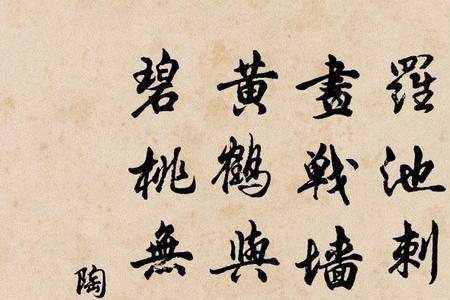 羅池刺
畫戟墙
黃鶴與
碧桃無
陶